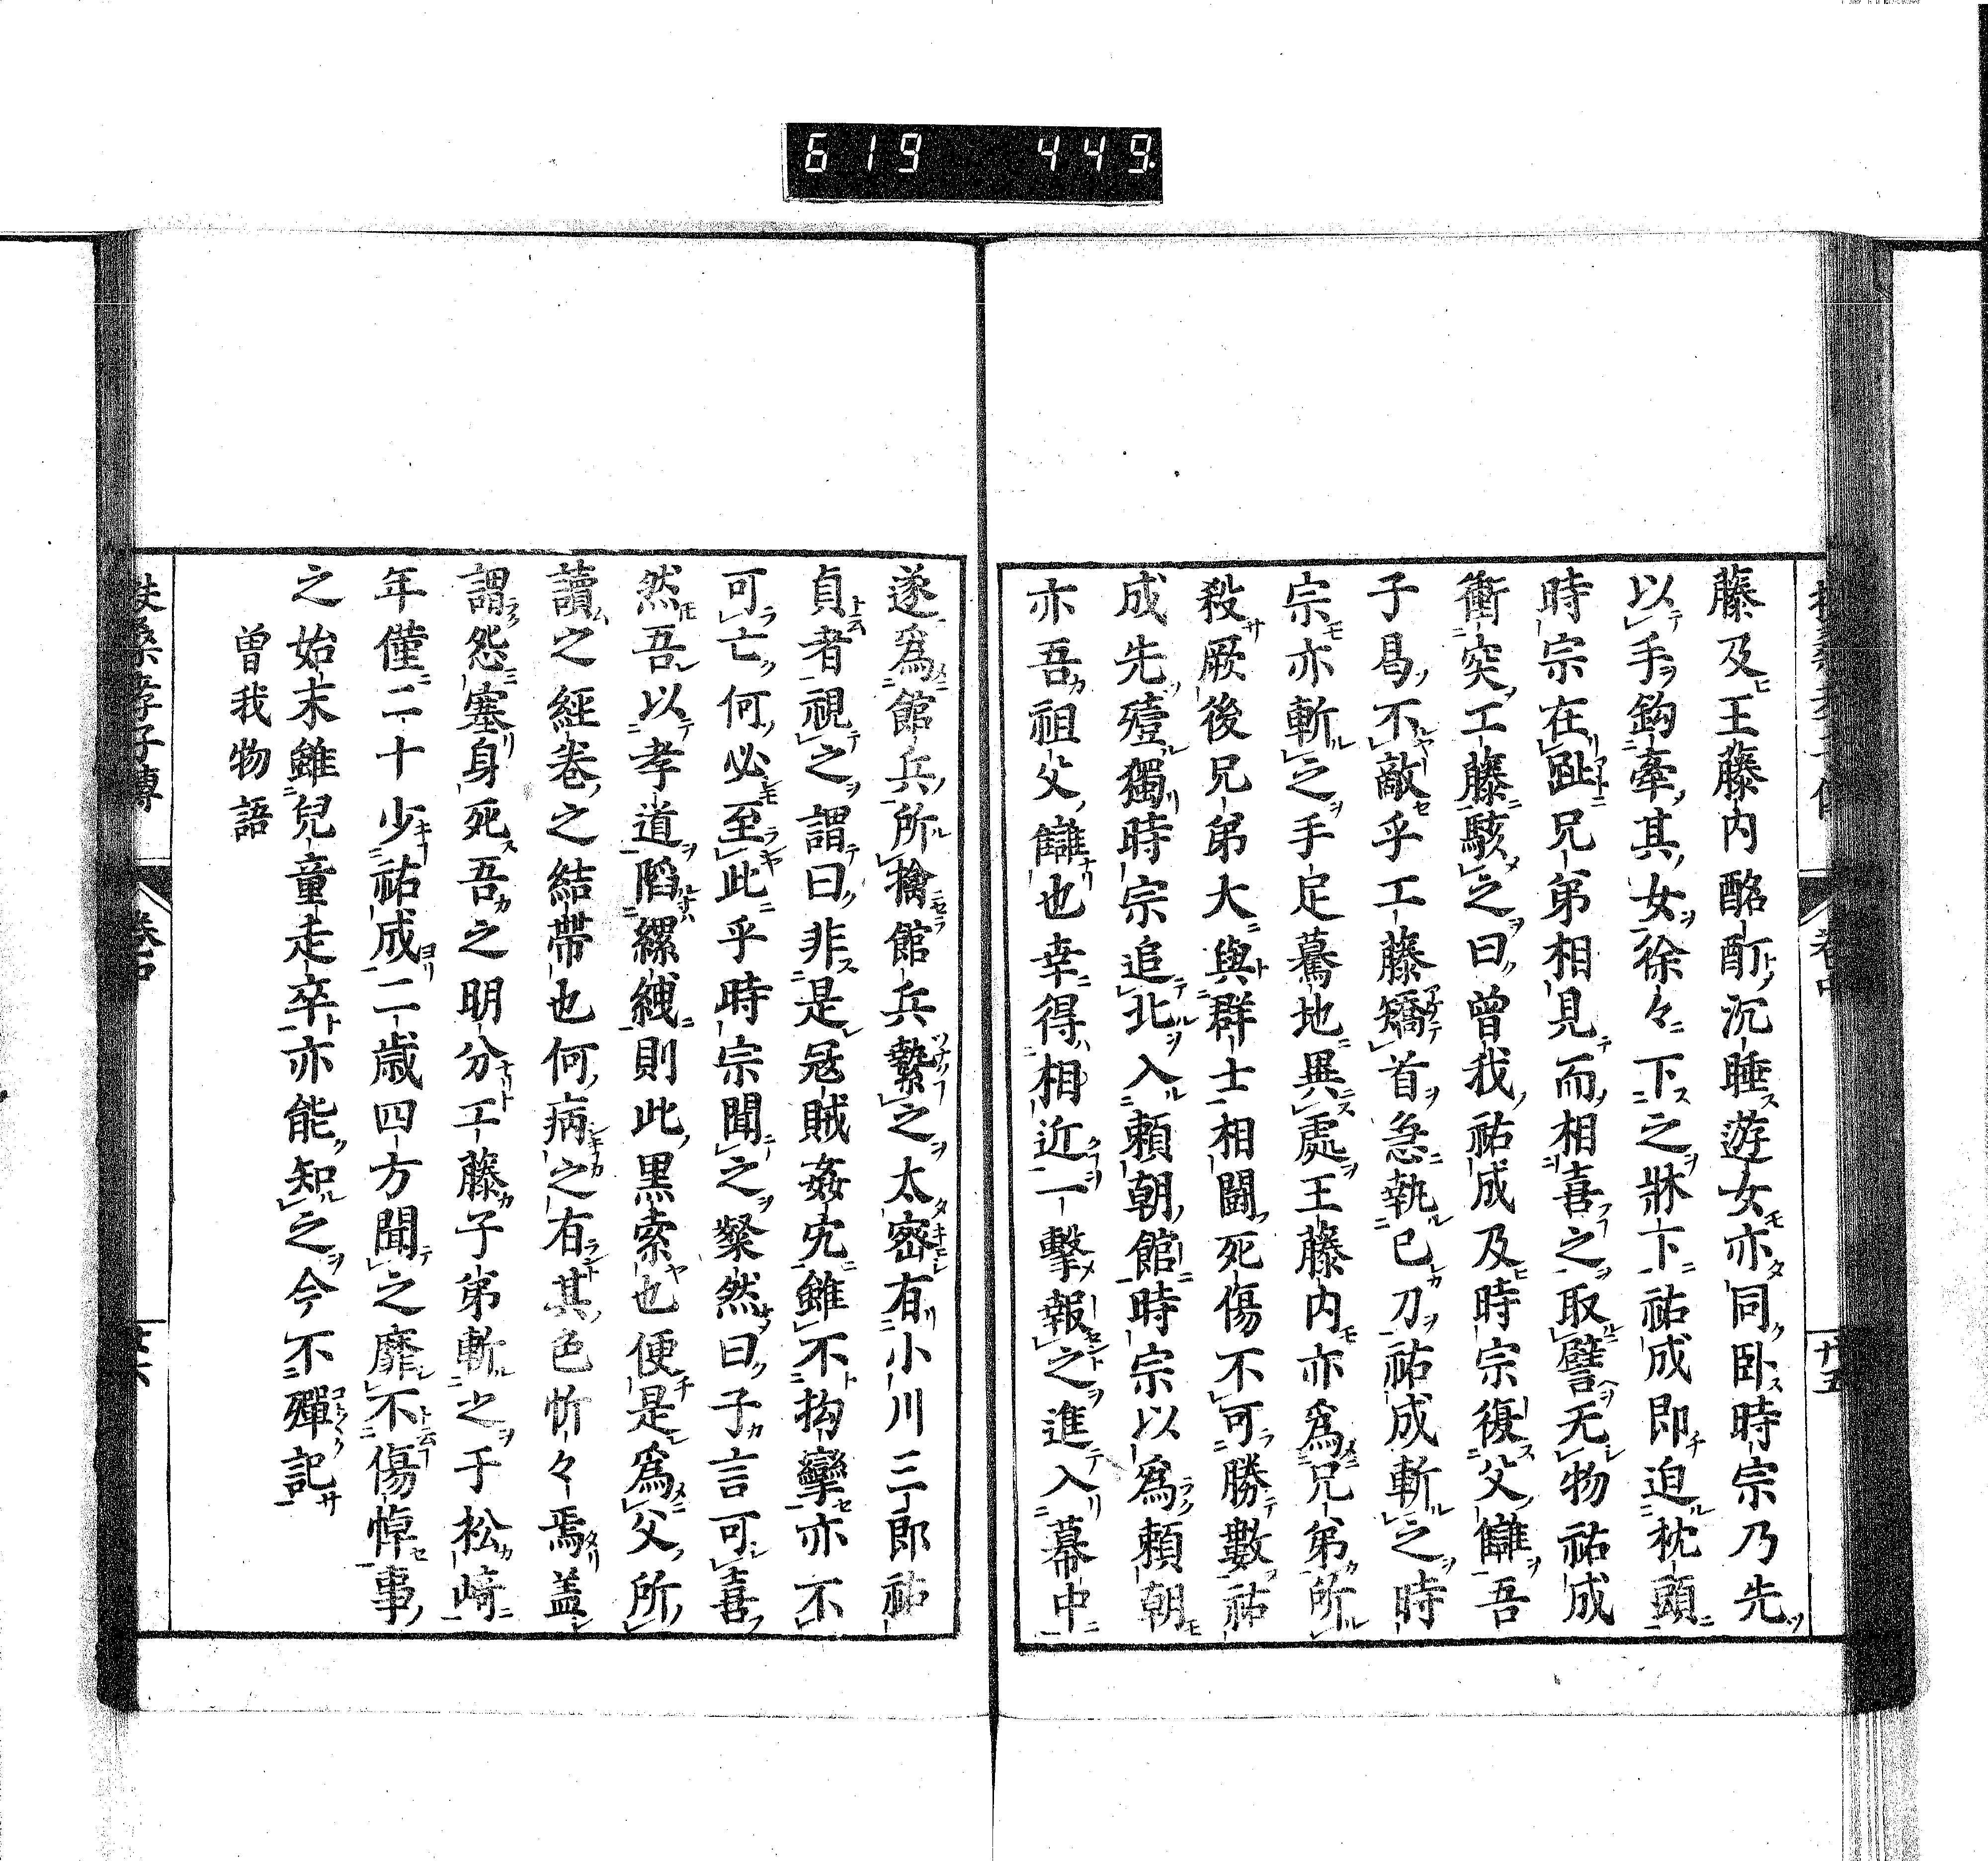 619 449.
藤及王藤内酩酊沉睡遊女亦同卧時宗乃先
以手鈎牽其女徐々下之牀下祐成即迫枕頭
時宗在趾兄弟相見而相喜之取譬无物祐成
衝突工藤駭之曰曾我祐成及時宗復父讎吾
子曷不敵乎工藤矯首急執己刀祐成斬之時
宗亦斬之手足驀地異處王藤内亦爲兄弟所
殺厥後兄弟大與群士相闘死傷不可勝數祐
成先殪獨時宗追北入頼朝館時宗以爲頼朝
亦吾祖父讎也幸得相近一擊報之進入幕中
卷中
廿五
遂爲館兵所擒館兵縶之太密有小川三郎祐
貞者視之謂曰非是冦賊姦宄雖不拘攣亦不
可亡何必至此乎時宗聞之粲然曰子言可喜
然吾以孝道陷縲絏則此黒索也便是爲父所
讀之經卷之結帶也何病之有其色忻々焉盖
謂怨塞身死吾之明分工藤子弟斬之于松崎
年僅二十少祐成二歳四方聞之靡不傷悼事
之始末雖兒童走卒亦能知之今不殫記
曽我物語
扶桑孝子傳
卷中